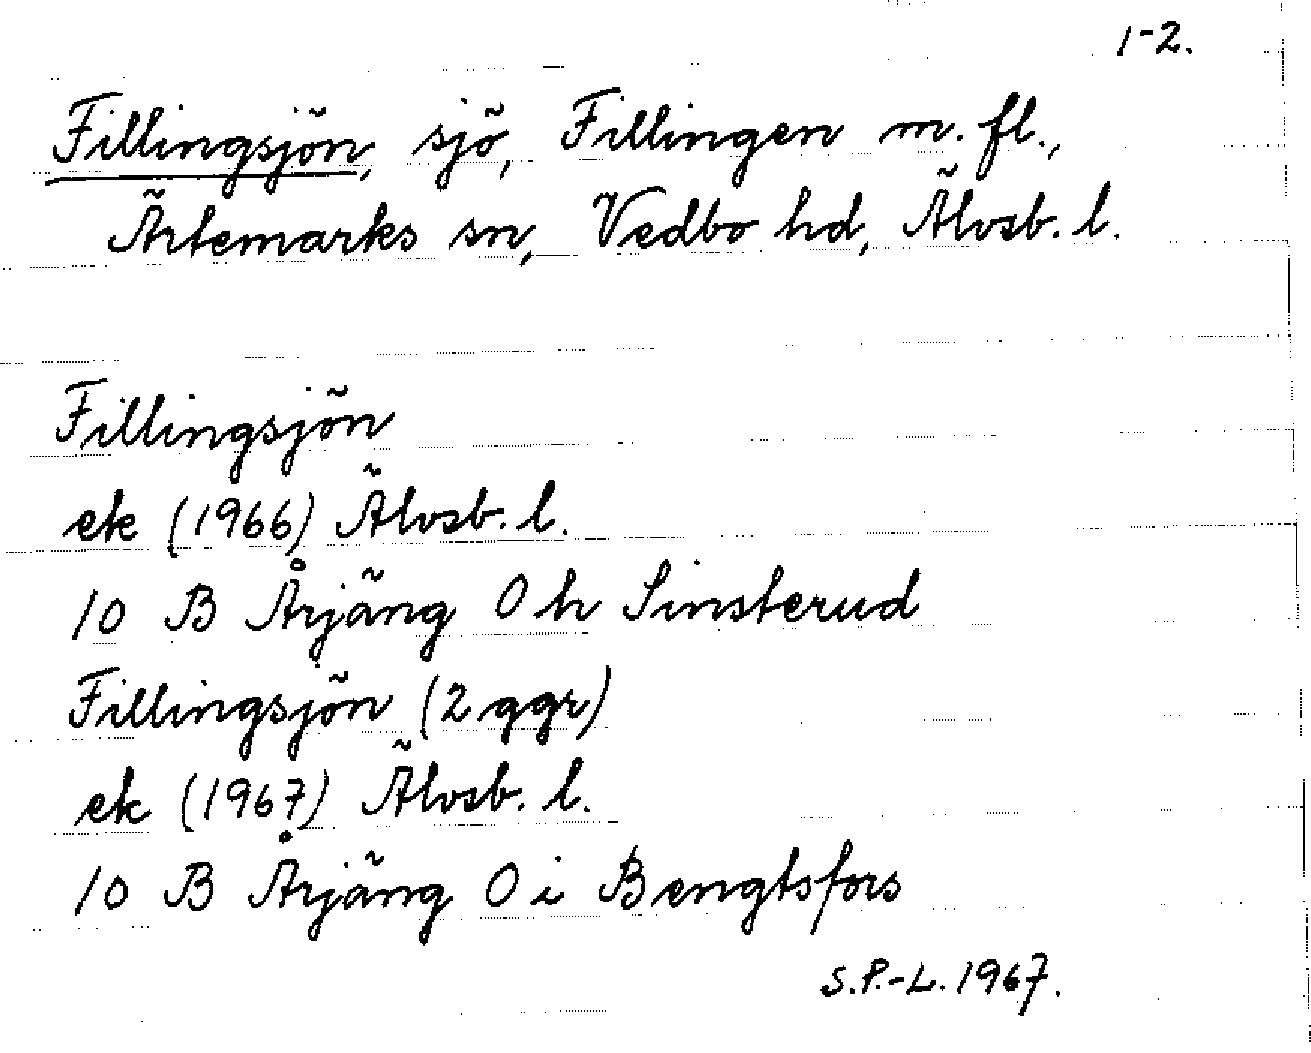 1-2.
Fillingsjön, sjö, Fillingen m. fl.,
Ärtemarks sn, Vedbo hd, Älvsb. l.
Fillingsjön
ek (1966) Älvsb. l.
10 B Årjäng 0 h Sinsterud
Fillingsjön (2 ggr)
ek (1967) Älvsb. l.
10 B Årjäng 0 i Bengtsfors
S.P.-L. 1967.